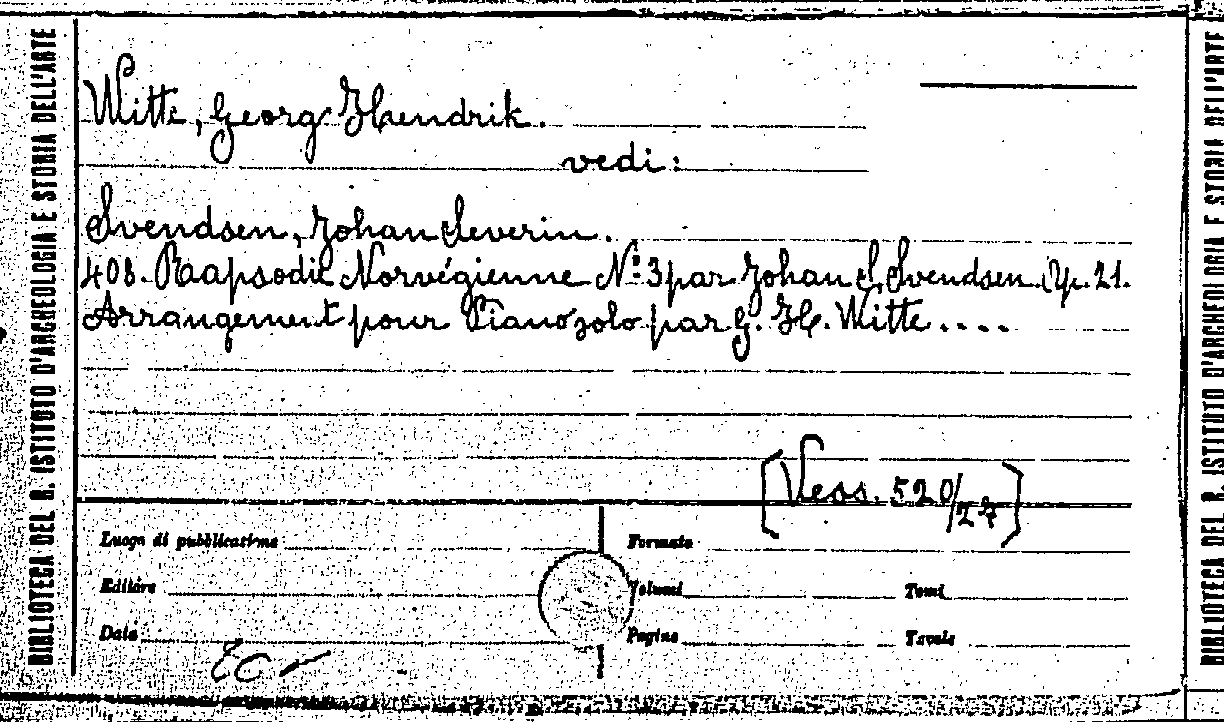 BIBLIOTECA DEL R. ISTITUTO D'ARCHEOLOGIA E STORIA DELL'ARTE
Witte, Georg Hendrik.
vedi:
Svendsen, Johan Severin.
408. Raapsodie Norvégienne No. 3 par Johan S. Svendsen. Op. 21.
Arrangement pour Piano solo par G. H. Witte....
[Vess. 520/27]
Luogo di pubblicazione
Formato
Editore
Volumi
Tomi
Data
Pagine
Tavole
BIBLIOTECA DEL R. ISTITUTO D'ARCHEOLOGIA E STORIA DELL'ARTE